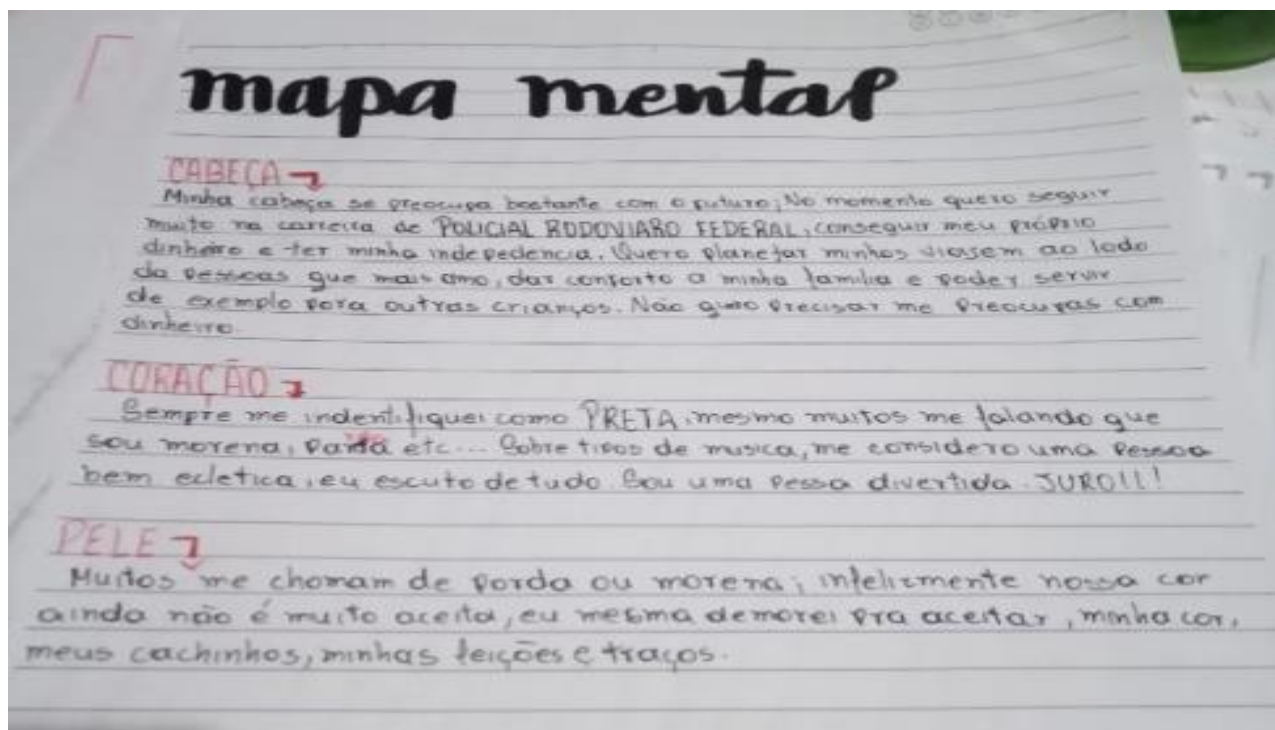 mapa mental
CABEÇA
Minha cabeça se preocupa bastante com o futuro; No momento quero seguir
muito na carreira de POLICIAL RODOVIARO FEDERAL, conseguir meu próprio
dinheiro e ter minha indepedencia. Quero planejar minhas viasem ao lado
da pessoas que mais amo, dar conforto a minha família e poder servir
de exemplo para outras crianças. Não quero precisar me preocupas com
dinheiro.
CORAÇÃO
Sempre me indentifiquei como PRETA, mesmo muitos me falando que
sou morena, parda etc... Sobre tipos de musica, me considero uma pessoa
bem ecletica, eu escuto de tudo. Sou uma pessa divertida. JURO!!!
PELE
Muitos me chamam de parda ou morena; infelizmente nossa cor
ainda não é muito aceita, eu mesma demorei pra aceitar, minha cor,
meus cachinhos, minhas feições e traços.